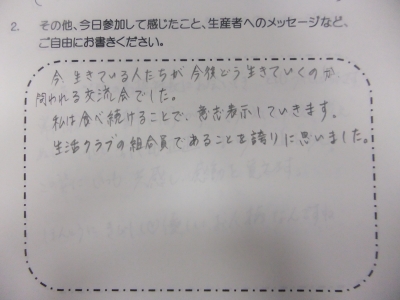 2. その他、今日参加して感じたこと、生産者へのメッセージなど、
ご自由にお書きください。
今生きている人たちが今後どう生きていくのか
問われる交流会でした。
私は食べ続けることで、意志表示していきます。
生活クラブの組合員であることを誇りに思いました。